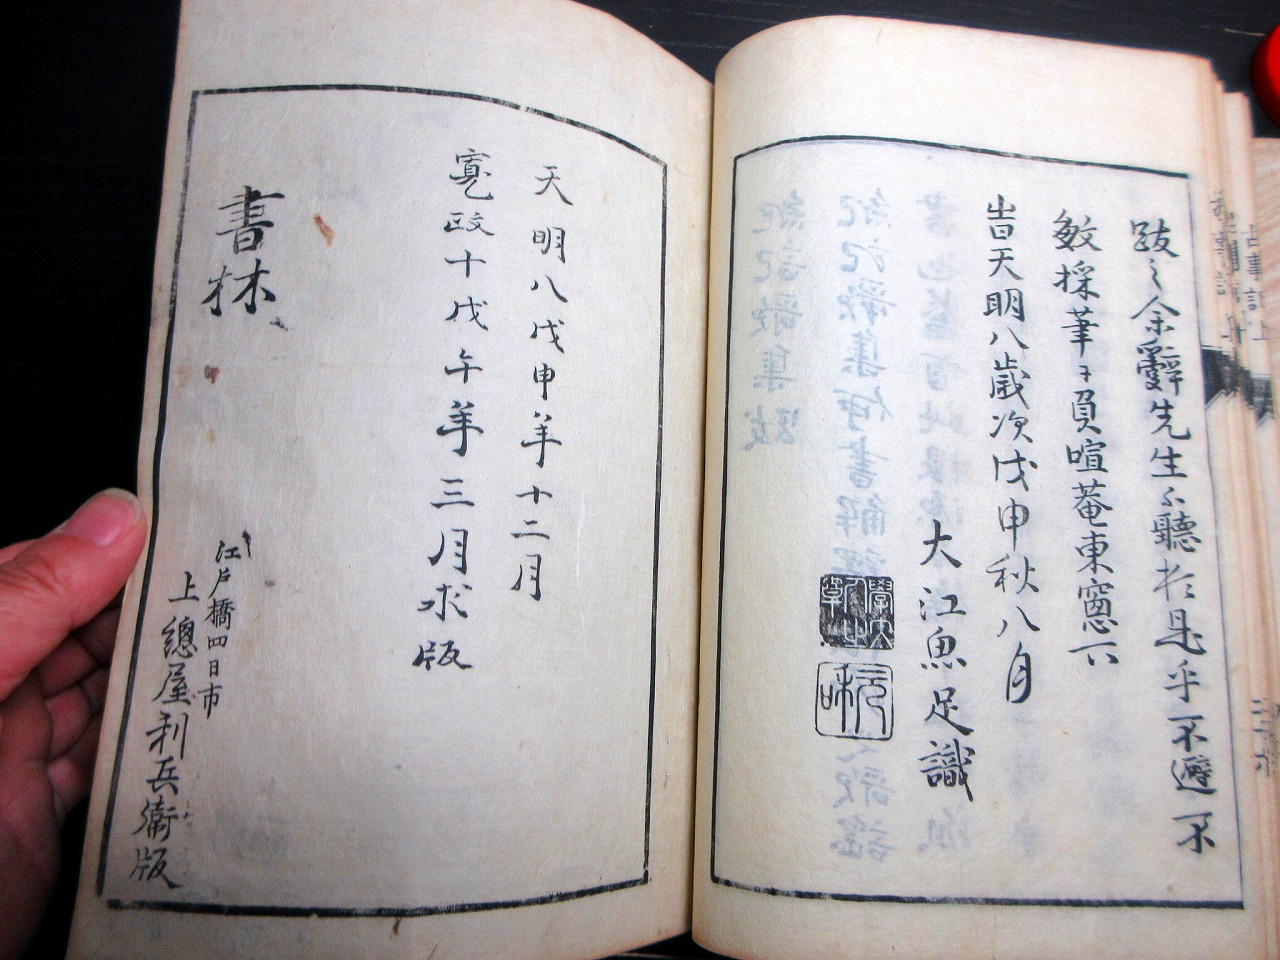 跋之余辭先生不聽於是乎不避不
敏採筆於負暄菴東窻下
旹天明八歳次戊申秋八月
大江魚足識
天明八戊申年十二月
寛政十戊午年三月求版
書林
江戸橋四日市
上總屋利兵衛版